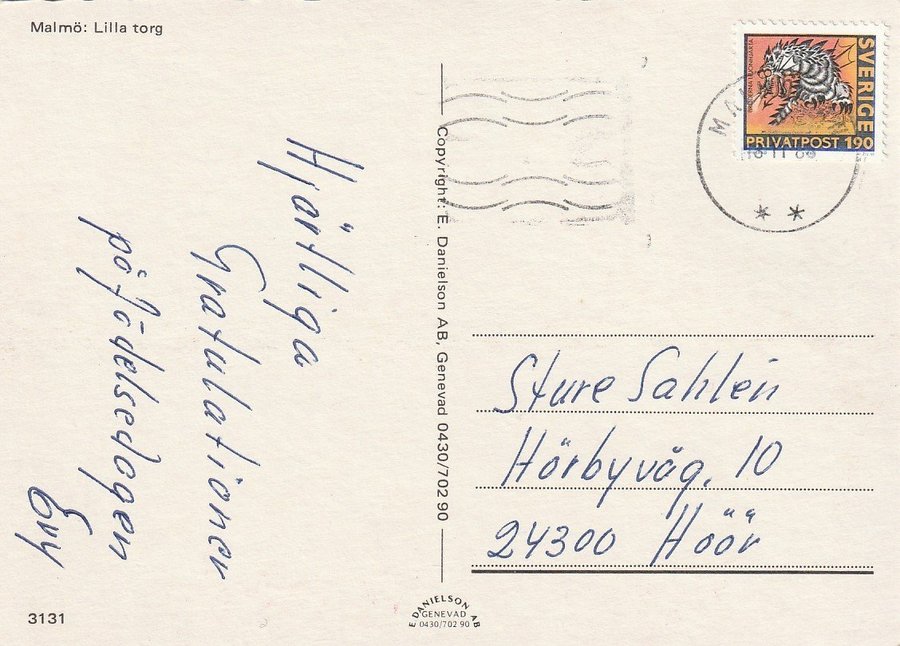 Malmö: Lilla torg
SVERIGE
PRIVATPOST 190
Hjärtliga
Gratulationer
på födelsedagen
Evy
Copyright: E. Danielson AB, Genevad 0430/702 90
Sture Sahlén
Hörbyväg. 10
24300 Höör
3131
E DANIELSON AB
GENEVAD
0430/702 90